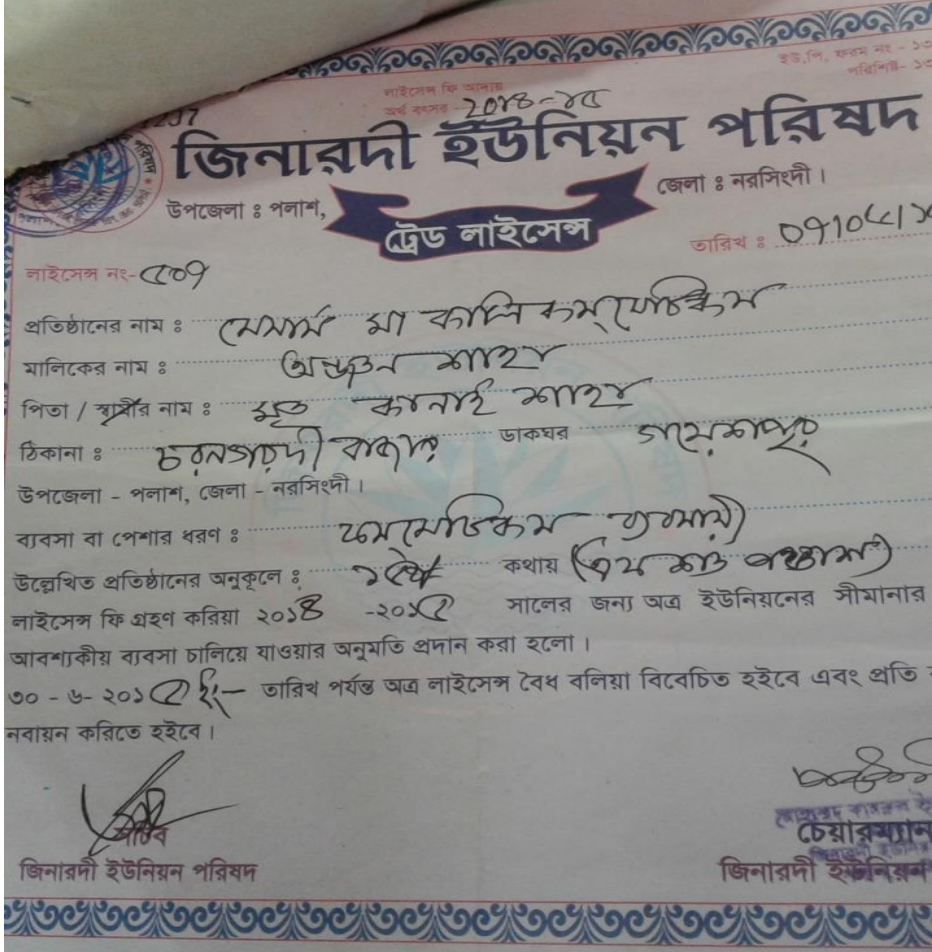 ইউ,পি, ফরম নং - ১৩
পরিশিষ্ট- ১৩
লাইসেন্স ফি আদায়
অর্থ বৎসর - ২০১৪-১৫
জিনারদী ইউনিয়ন পরিষদ
উপজেলা ঃ পলাশ,
জেলা ঃ নরসিংদী।
ট্রেড লাইসেন্স
তারিখ ঃ ০৭/০৫/১
লাইসেন্স নং- ৫০৭
প্রতিষ্ঠানের নাম ঃ মেসার্স মা কালি কসমেটিকস
মালিকের নাম ঃ শাহা
পিতা / স্বামীর নাম ঃ মৃত কানাই শাহা
ঠিকানা ঃ চরনগরদী বাজার ডাকঘর গয়েশপুর
উপজেলা - পলাশ, জেলা - নরসিংদী।
ব্যবসা বা পেশার ধরণ ঃ কসমেটিকস ব্যবসায়ী
উল্লেখিত প্রতিষ্ঠানের অনুকূলে ঃ ১৫০/= কথায় (এক শত পঞ্চাশ)
লাইসেন্স ফি গ্রহণ করিয়া ২০১৪ -২০১৫ সালের জন্য অত্র ইউনিয়নের সীমানার
আবশ্যকীয় ব্যবসা চালিয়ে যাওয়ার অনুমতি প্রদান করা হলো।
৩০ - ৬- ২০১৫ ইং- তারিখ পর্যন্ত অত্র লাইসেন্স বৈধ বলিয়া বিবেচিত হইবে এবং প্রতি
নবায়ন করিতে হইবে।
সচিব
জিনারদী ইউনিয়ন পরিষদ
চেয়ারম্যান
জিনারদী ইউনিয়ন